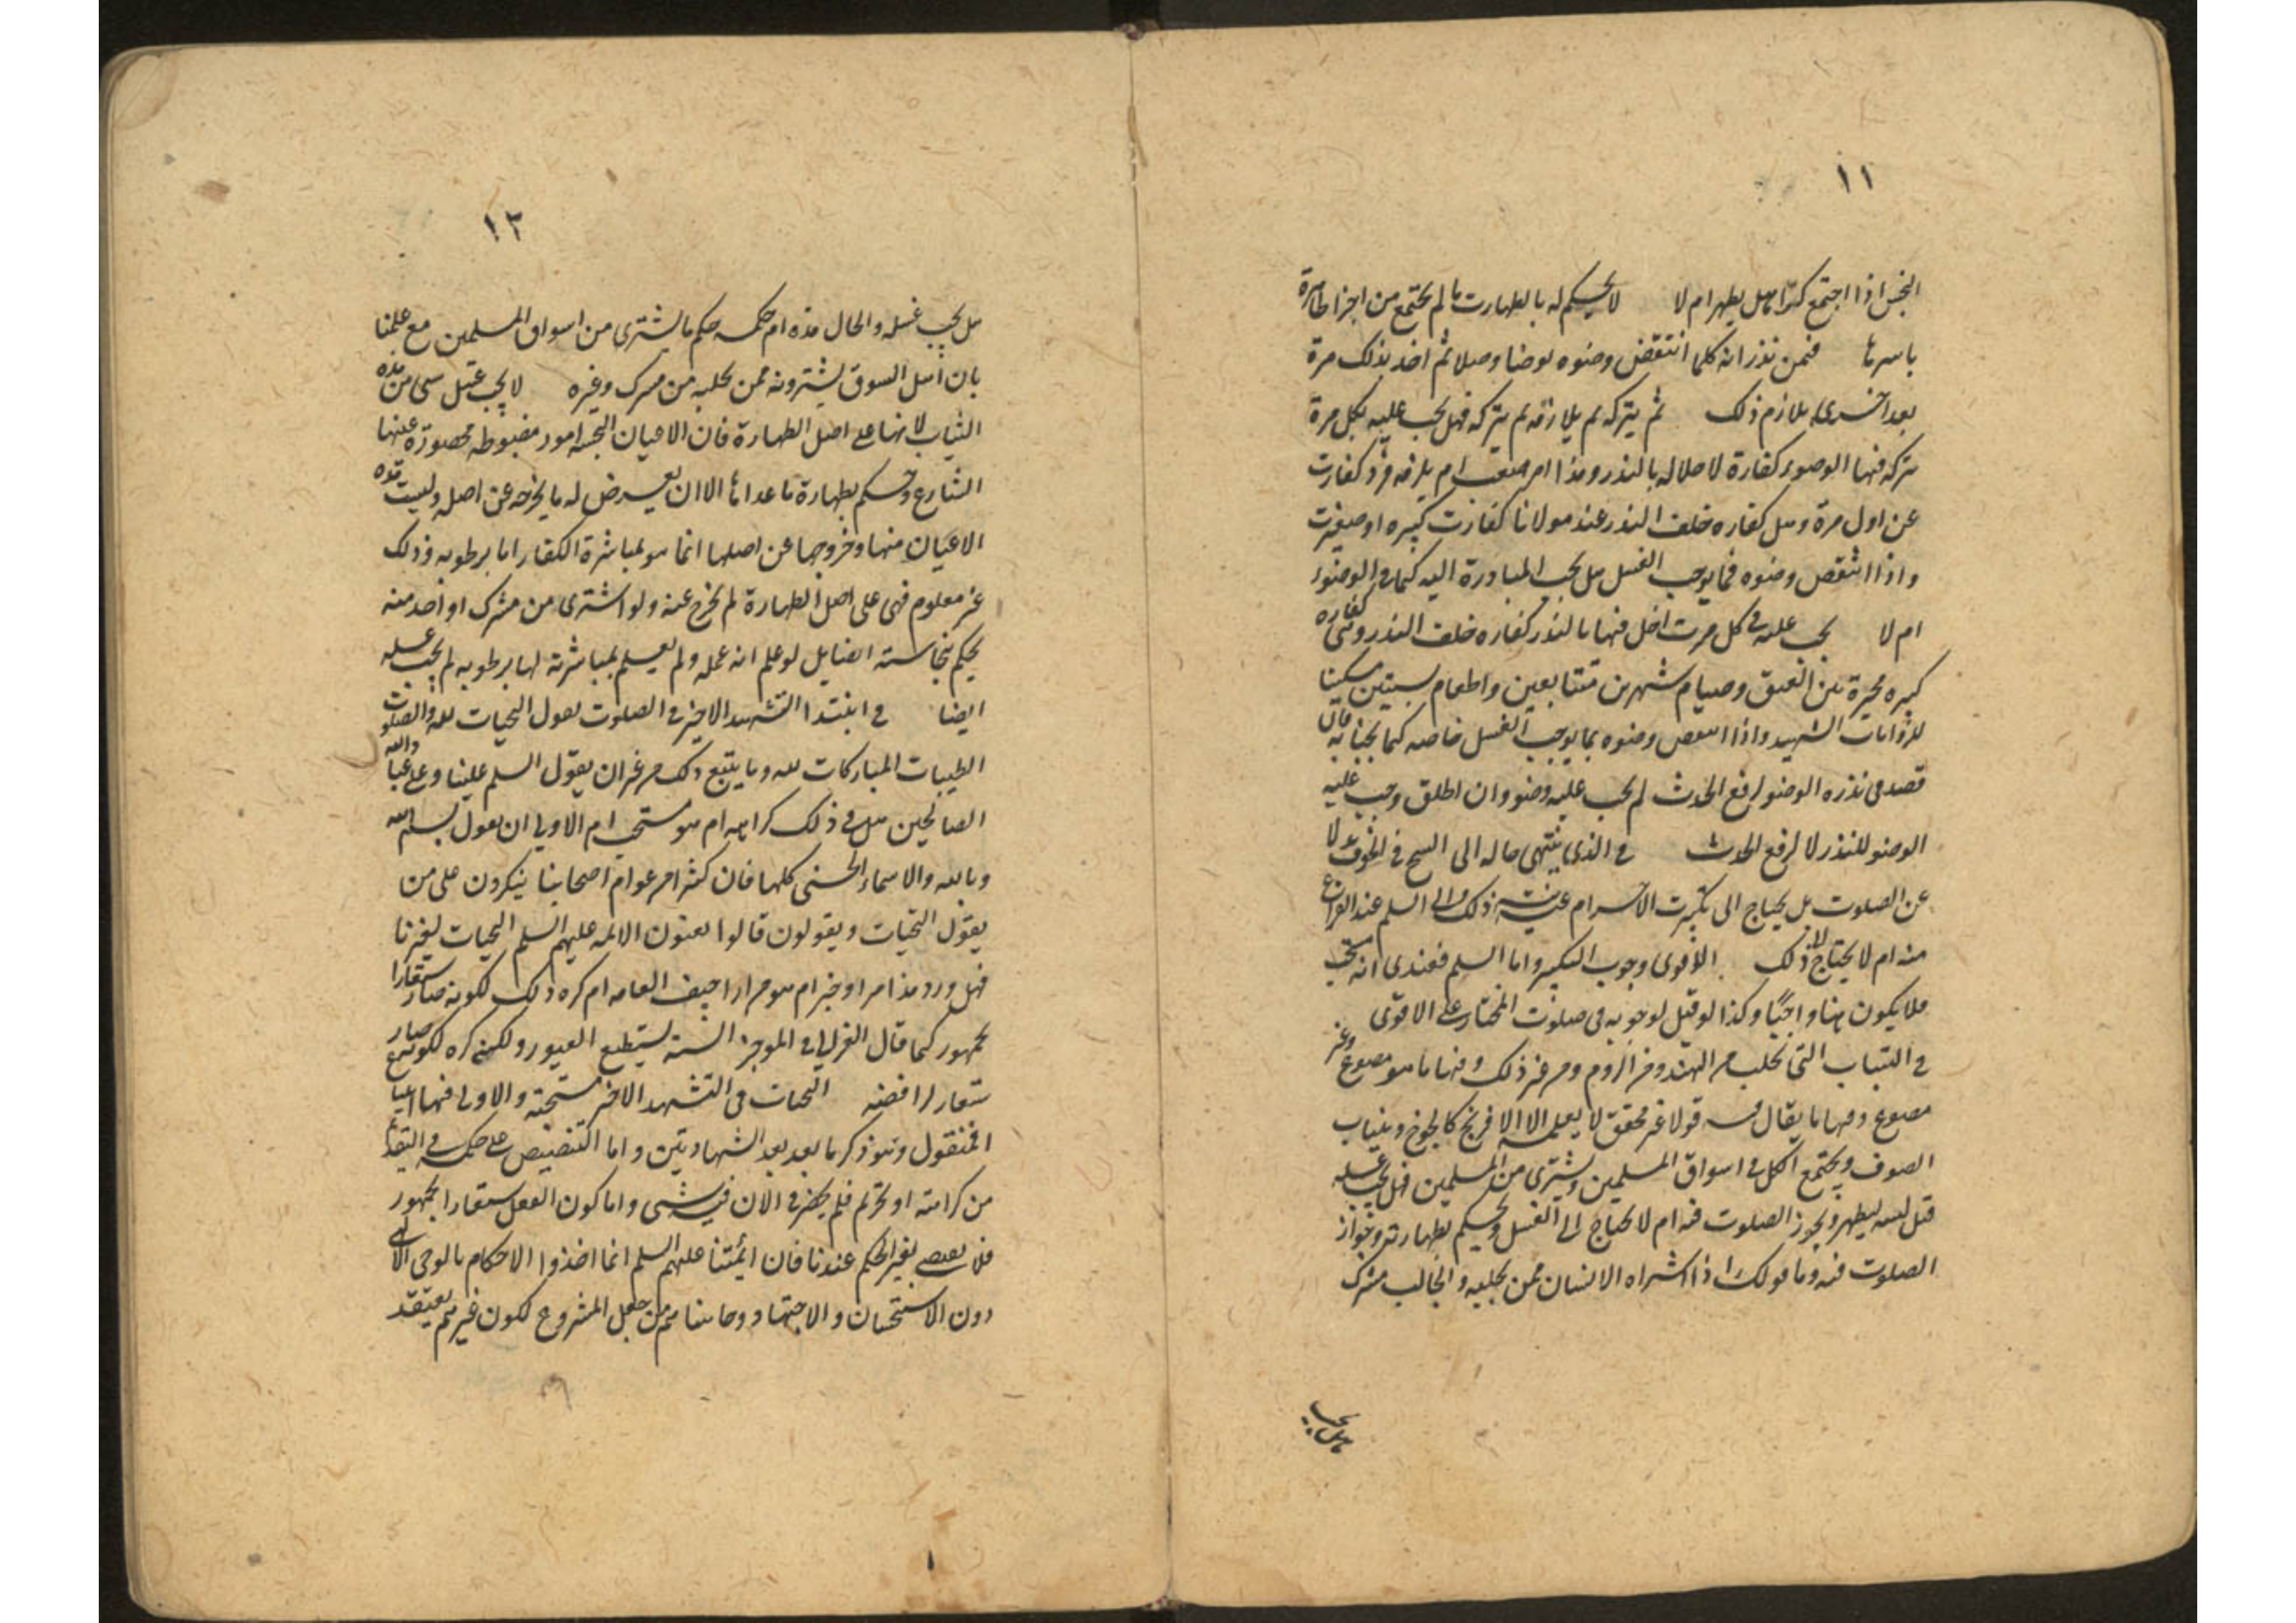 ١١
النجس اذا اجتمع كرّا هل يطهر ام لا لا يحكم له بالطهارت ما لم يجتمع من اجزا طاهرة
باسرها فمن نذر انه كلما انتقض وضوه توضا وصلا ثم اخذ بذلك مرة
بعد اخرى يلازم ذلك ثم يتركه ثم يلازمه ثم يتركه فهل يجب عليه بكل مرة
يتركه فيها الوضوء كفارة لاخلاله بالنذر وهذا امر صعب ام يلزمه فرد كفارت
عن اول مرة وهل كفاره خلف النذر عند مولانا كفارت كبيره او صغيرت
واذا انتقض وضوه فما يوجب الغسل هل يجب المبادرة اليه كما في الوضوء
ام لا يجب عليه في كل مرت اخل فيها بالنذر كفاره خلف النذر وهي كفاره
كبيره مخيرة بين العتق وصيام شهرين متتابعين واطعام ستين مسكينا
واذا انتقض وضوه بما يوجب الغسل خاصه كما فان
قصد في نذره الوضو لرفع الحدث لم يجب عليه وضو وان اطلق وجب عليه
الوضو للنذر لا لرفع الحدث في الذي ينتهي حاله الى في الخوف
عن الصلوت بل يحتاج الى تكبيرت الاحرام ذلك والى السلم عند الفراغ
منه ام لا يحتاج لذلك الاقوى وجوب التكبير واما السلم فعندي انه يستحب
فلا يكون هنا واجبًا وكذا لو قيل لوجوبه في صلوت المختار على الاقوى
في الثياب التي تجلب من الهند ومن الروم ومن غير ذلك ومنها ما هو مصبوغ وغير
مصبوغ ومنها ما يقال فيه قولا غير محقق لا يعمله الا الافرنج كالجوخ وثياب
الصوف ويجتمع الكل في اسواق المسلمين ويشترى من المسلمين فهل يجب غسله
قبل لبسه ليطهر ويجوز الصلوت فيه ام لا يحتاج الى الغسل ويحكم بطهارته وجواز
الصلوت فيه وما قولك اذا اشتراه الانسان ممن يجلبه والجالب مشرك
هل يجب
١٢
هل يجب غسله والحال هذه ام حكمه حكم ما يشترى من اسواق المسلمين مع علمنا
بان اهل السوق يشترونه ممن يجلبه من مشرك وغيره لا يجب غسل شى من هذه
الثياب لانها على اصل الطهارة فان الاعيان النجسه امور مضبوطه محصورة عينها
الشارع وحكم بطهارة ما عداها الا ان يعرض له ما يخرجه عن اصله وليست هذه
الاعيان منها وخروجها عن اصلها انما هو بمباشرة الكفار اما برطوبه وذلك
غير معلوم فهي على اصل الطهارة لم تخرج عنه ولو اشترى من مشرك او اخذ منه
لم يحكم بنجاسته ايضا بل لو علم انه عمله ولم يعلم بمباشرته لها برطوبه لم يجب غسله
ايضا في ابتدا التشهد الاخير في الصلوت يقول التحيات لله والصلوت
الطيبات المباركات لله وما يتبع ذلك من غير ان يقول السلم علينا وعلى عباد الله
الصالحين هل في ذلك كراهه ام هو مستحب ام الاولى ان يقول بسم الله
وبالله والاسماء الحسنى كلها فان كثيرا من عوام اصحابنا ينكرون على من
يقول التحيات ويقولون قالوا يعنون الائمه عليهم السلم التحيات لغيرنا
فهل ورد هذا امر او خبر ام هو من اراجيف العامه ام كره ذلك لكونه صار شعارا
لجمهور كما قال الغزالي في الموجز السنة تسطيح القبور ولكن كره لكونه صار
شعار لرافضه التحيات في التشهد الاخير مستحبه والاولى فيها اتباع
المنقول وهو ذكرها بعد الشهادتين واما التنصيص على حكمه في
من كراهته او تحريم فلم يحضرني الان فيه شى واما كون الفعل شعارا لجمهور
فلا يقتضي تغير الحكم عندنا فان ائمتنا عليهم السلم انما اخذوا الاحكام بالوحى الالهى
دون الاستحسان والاجتهاد وحاشاهم من جعل المشروع لكون غيرهم يعتقد